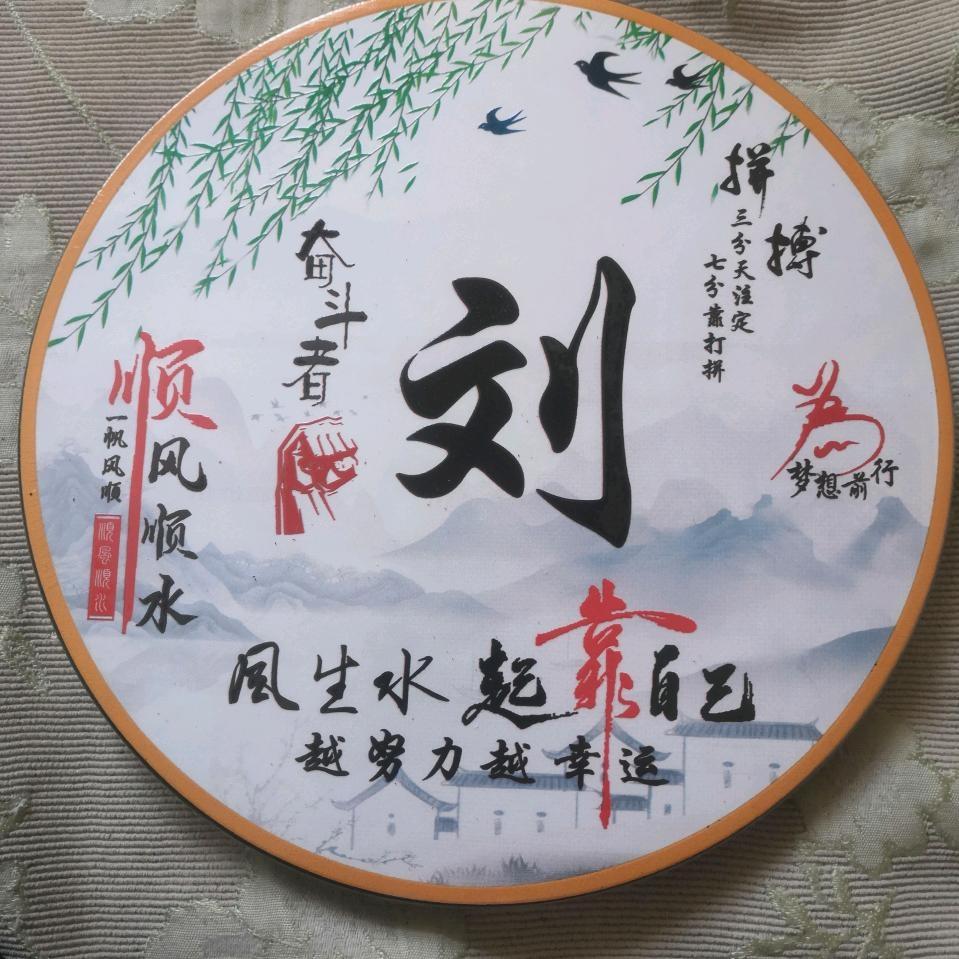 刘
奋斗者
拼搏
三分天注定
七分靠打拼
为
梦想前行
顺风顺水
一帆风顺
順風順水
風生水起靠自己
越努力越幸运